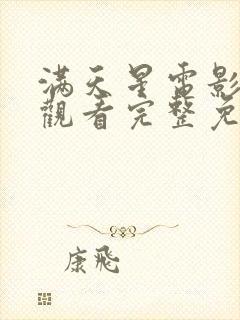 满天星電影
觀看完整免
康飛